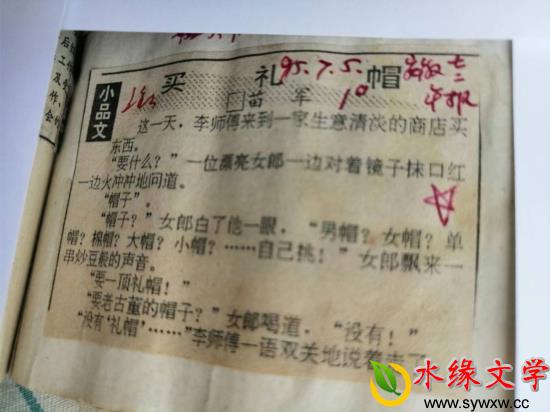 小品文
买 礼 帽
95.7.5.
□苗 军
10
这一天，李师傅来到一家生意清淡的商店买
东西。
“要什么？”一位漂亮女郎一边对着镜子抹口红
一边火冲冲地问道。
“帽子”。
“帽子？”女郎白了他一眼，“男帽？女帽？单
帽？棉帽？大帽？小帽？……自己挑！”女郎飘来一
串炒豆般的声音。
“要一顶礼帽！”
“要老古董的帽子？”女郎喝道，“没有！”
“没有‘礼帽’……”李师傅一语双关地说着走了
水缘文学
www.sywxw.cc